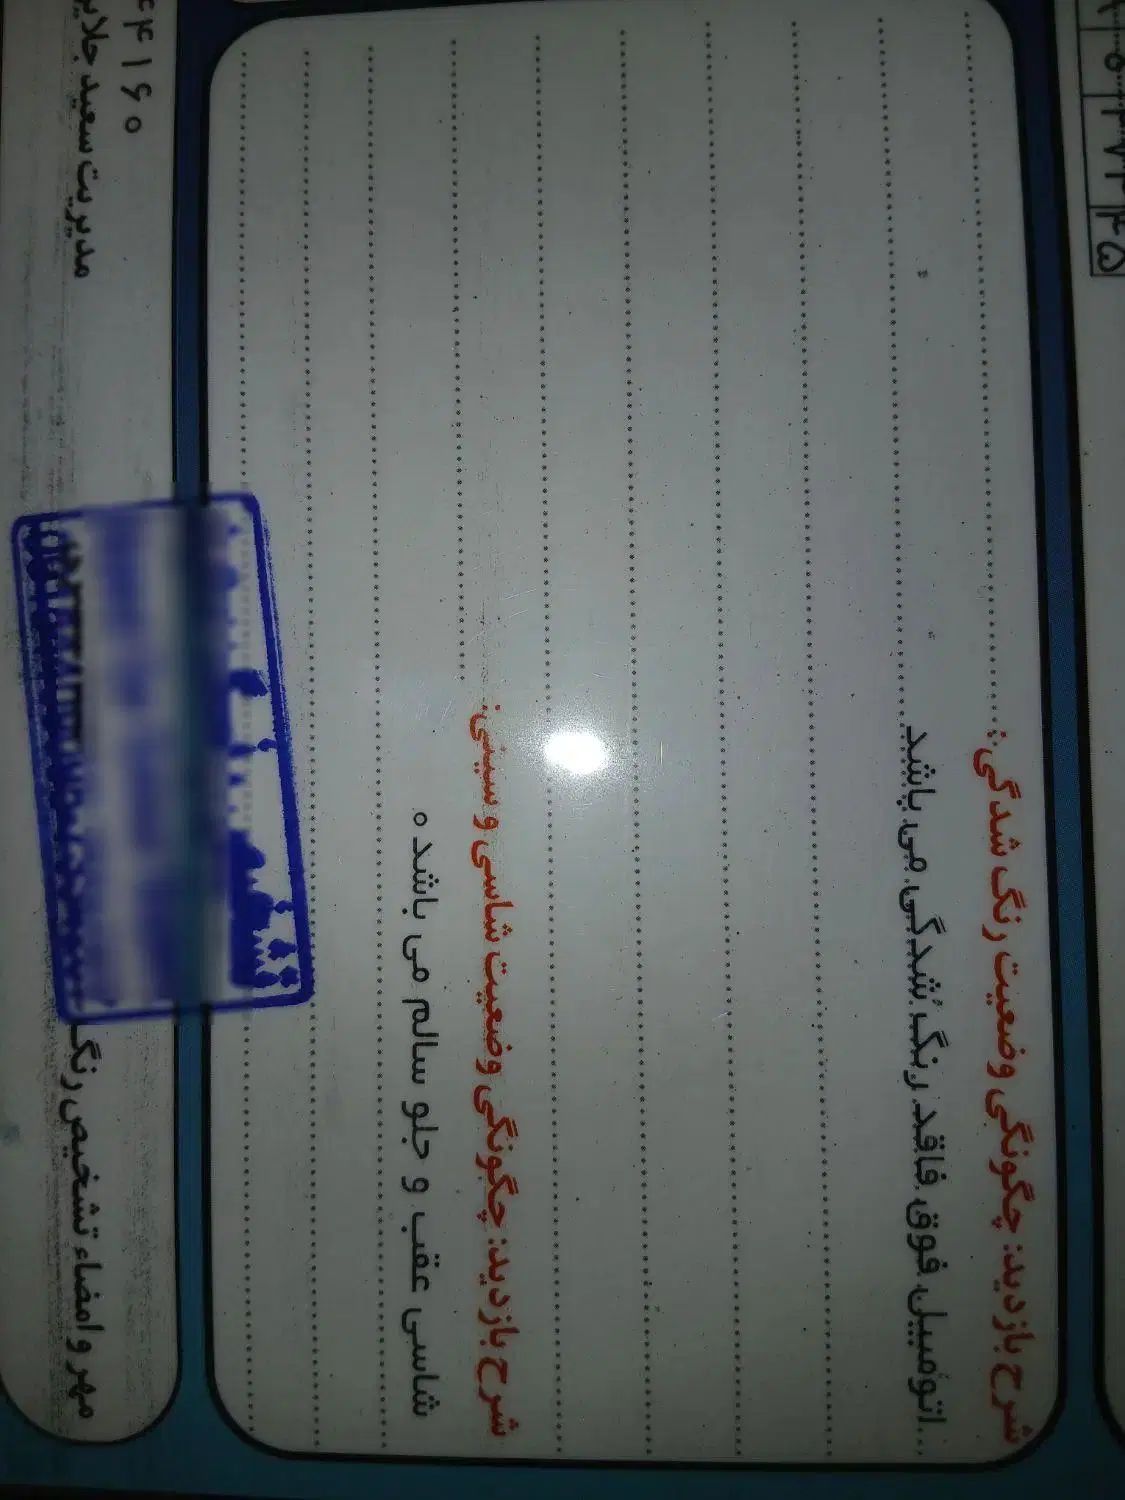 شرح بازدید: چگونگی وضعیت رنگ شدگی:
اتومبیل فوق فاقد رنگ شدگی می باشد
شرح بازدید: چگونگی وضعیت شاسی و سینی:
شاسی عقب و جلو سالم می باشد ٥
مهر و امضاء تشخیص رنگ
مدیریت سعید